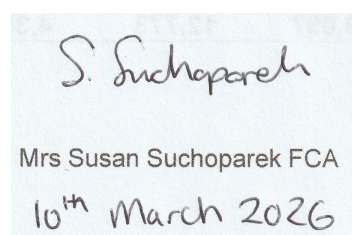 S. Suchoparek
Mrs Susan Suchoparek FCA
10th March 2026